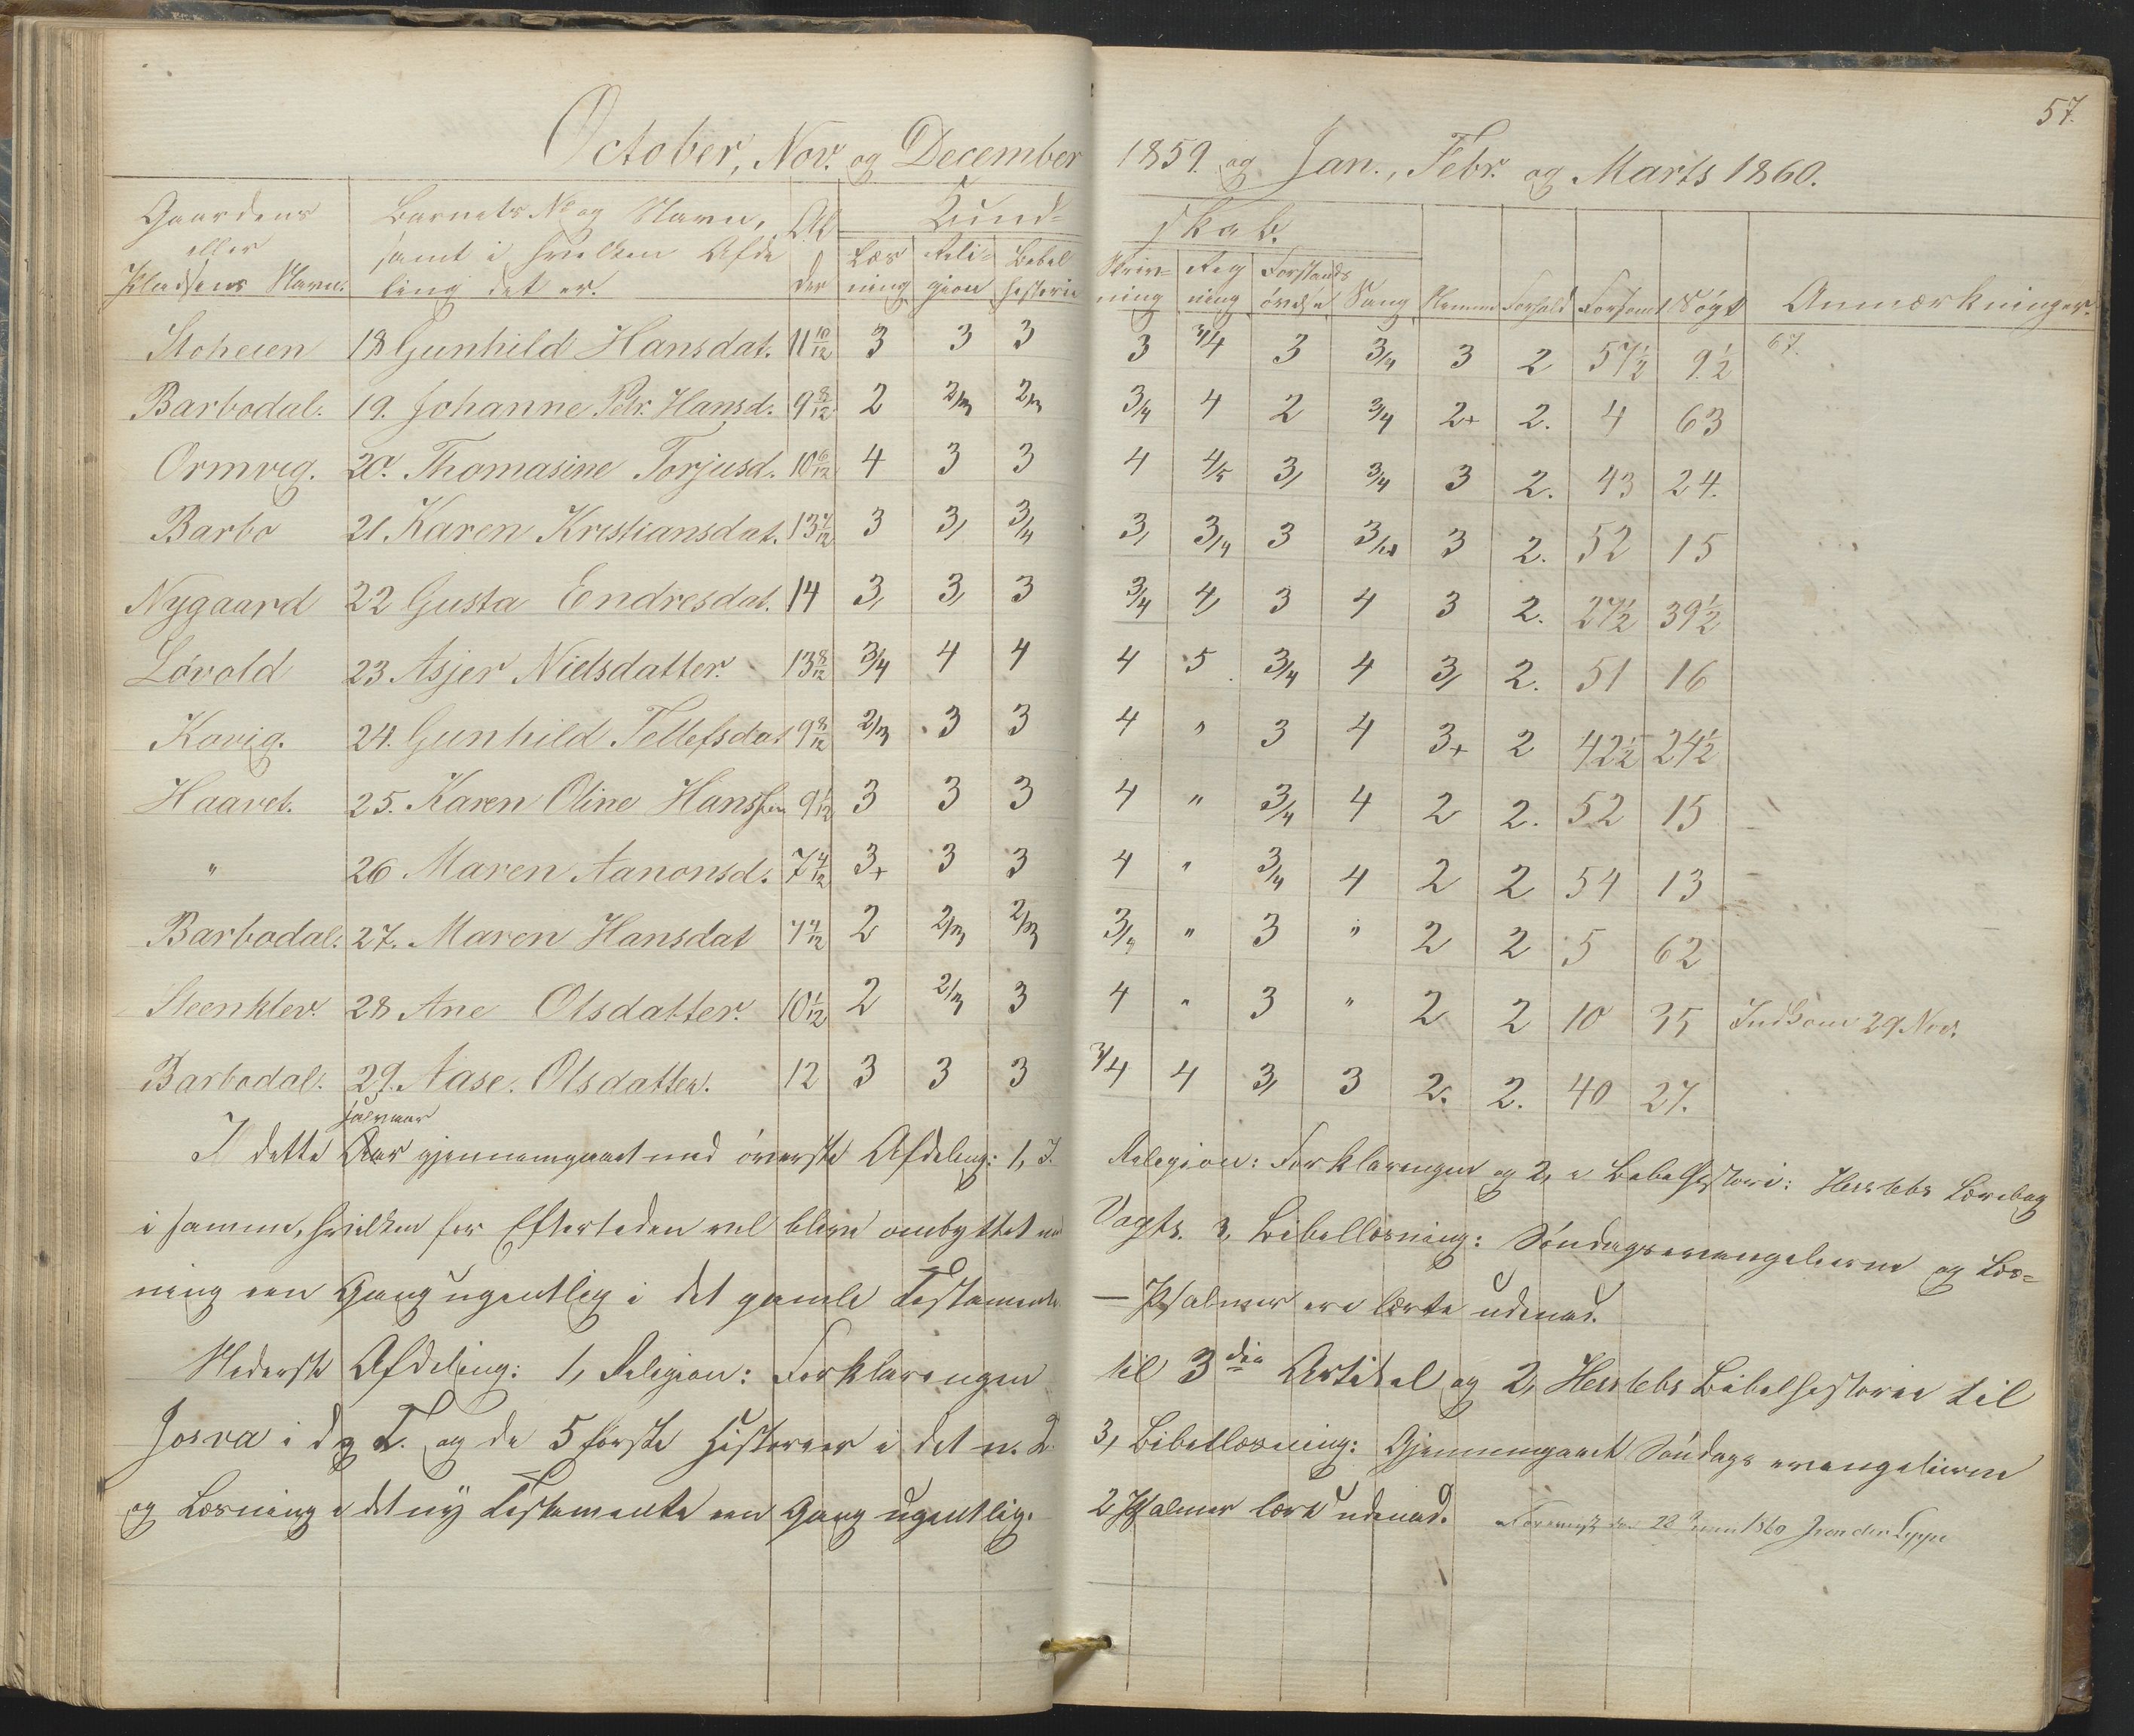 57.
October, Nov. og December 1859 og Jan., Febr. og Marts 1860.
Gaardens eller Pladsens Navn. | Barnets No og Navn, samt i hvilken Afdeling det er. | Alder | Kundskab. | Læsning | Religion | Bibelhistorie | Skrivning | Regning | Forstandsøvelse | Sang | Nemme | Forhold | Forsømt | Søgt | Anmærkninger.
Stoheien 18 Gunhild Hansdat. 11 10/12 3 3 3 3 3/4 3 3/4 3 2 57½ 9½ 67.
Barbodal. 19. Johanne Petr. Hansd. 9 8/12 2 2/3 2/3 3/4 4 2 3/4 2+ 2. 4 63
Ormvig. 20. Thomasine Torjusd. 10 6/12 4 3 3 4 4/5 3, 3/4 3 2. 43 24.
Barbo 21 Karen Kristiansdat. 13 7/12 3 3, 3/4 3, 3/4 3 3/4 3 2. 52 15
Nygaard 22 Gusta Endresdat. 14 3, 3, 3 3/4 4, 3 4 3 2. 27½ 39½
Løvold 23 Asjer Nielsdatter. 13 8/12 3/4 4 4 4 5 3/4 4 3, 2. 51 16
Kovig. 24. Gunhild Tellefsdat 9 8/12 2/3 3 3 4 " 3 4 3+ 2 42½ 24½
Haavet. 25. Karen Oline Hanssen 9 1/12 3 3 3 4 " 3/4 4 2 2. 52 15
" 26 Maren Aanonsd. 7 4/12 3+ 3 3 4 " 3/4 4 2 2 54 13
Barbodal. 27. Maren Hansdat 7 7/12 2 2/3 2/3 3/4 " 3 " 2 2 5 62
Steenklev. 28 Ane Olsdatter. 10 1/12 2 2/3 3 4 " 3 " 2 2 10 35 Indkom 29 Nov.
Barbodal. 29. Aase. Olsdatter. 12 3 3 3 3/4 4 3, 3 2. 2. 40 27.
halvaar
I dette Aar gjennemgaaet med øverste Afdeling: 1, I Religion: Forklaringen og 2, i Bibelhistorie: Herslebs Lærebog
i samme, hvilken for Eftertiden vel blive ombyttet med Vogts. 3, Bibellæsning: Søndagsevangelierne og Læs=
ning een Gang ugentlig i det gamle Testamente. — Psalmer ere lærte udenad.
Nederste Afdeling: 1, Religion: Forklaringen til 3die Artikel og 2, Herslebs Bibelhistorie til
Josva i d. g. T. og de 5 første Historier i det n. T. 3, Bibellæsning: Gjennemgaaet Søndagsevangelierne
og Læsning i det ny Testamente een Gang ugentlig. 2 Psalmer lært udenad. Foreviist den 28 1860